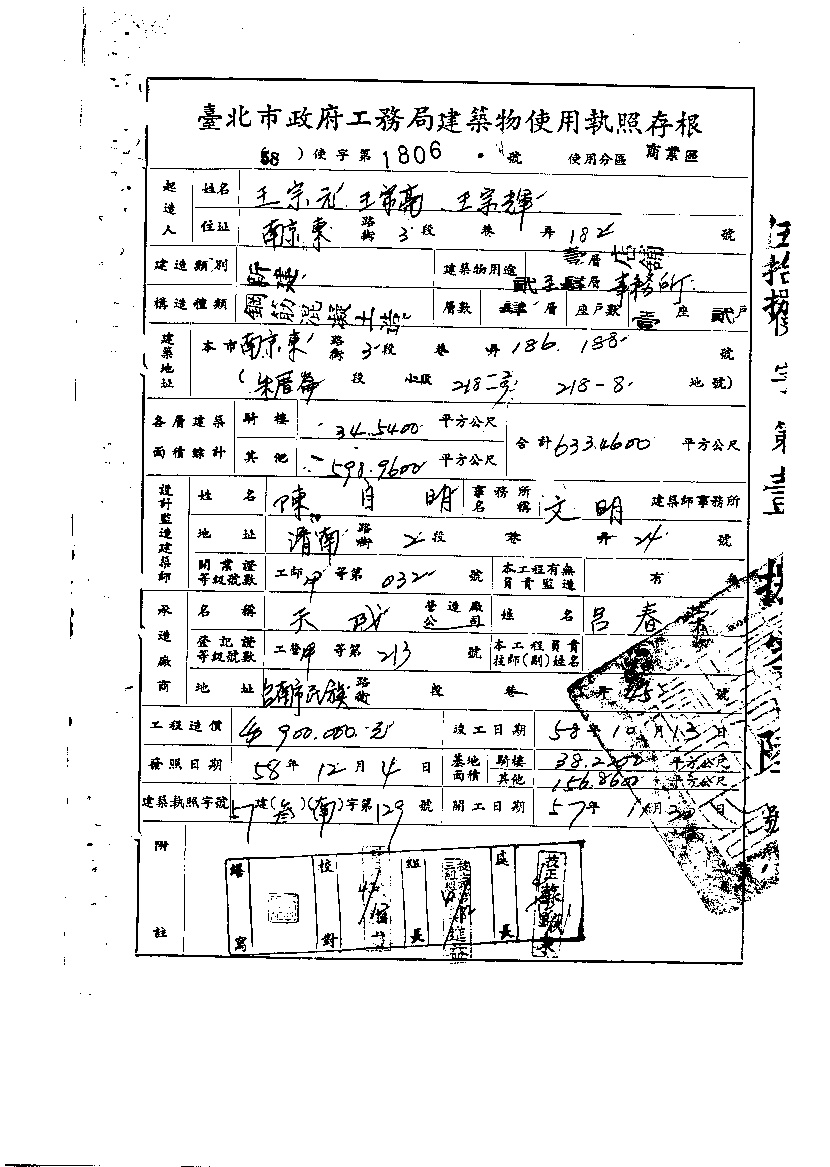 臺北市政府工務局建築物使用執照存根
(58)使字第1806號 使用分區 商業區
起造人 姓名 王宗元 王常亮 王宗輝
住址 南京東路街 3段 巷 弄 182 號
建造類別 新建 建築物用途 壹層店舖 貳至肆層事務所
構造種類 鋼筋混凝土造 層數 肆層 座戶數 壹座 貳戶
建築地址 本市南京東路街 3段 巷 弄 186. 188 號
(朱厝崙 段 小段 218-3 218-8 地號)
各層建築面積綜計 騎樓 34.5400 平方公尺 合計 633.4600 平方公尺
其他 598.9600 平方公尺
設計監造建築師 姓名 陳 明 事務所名稱 文明 建築師事務所
地址 濟南路街 2段 巷 弄 24 號
開業證等級號數 工師甲等第032號 本工程有無負責監造 有
承造廠商 名稱 天成 營造廠公司 姓名 呂春榮
登記證等級號數 工營甲等第213號 本工程負責技師(副)姓名
地址 台南市民族路街 段 巷 弄 號
工程造價 900.000.元 竣工日期 58年10月13日
發照日期 58年12月4日 基地面積 騎樓 38.2200 平方公尺
其他 156.8600 平方公尺
建築執照字號 57建(參)(南)字第129號 開工日期 57年1月30日
附註
繕寫 校對 組長 處長
伍拾捌 字第壹 號